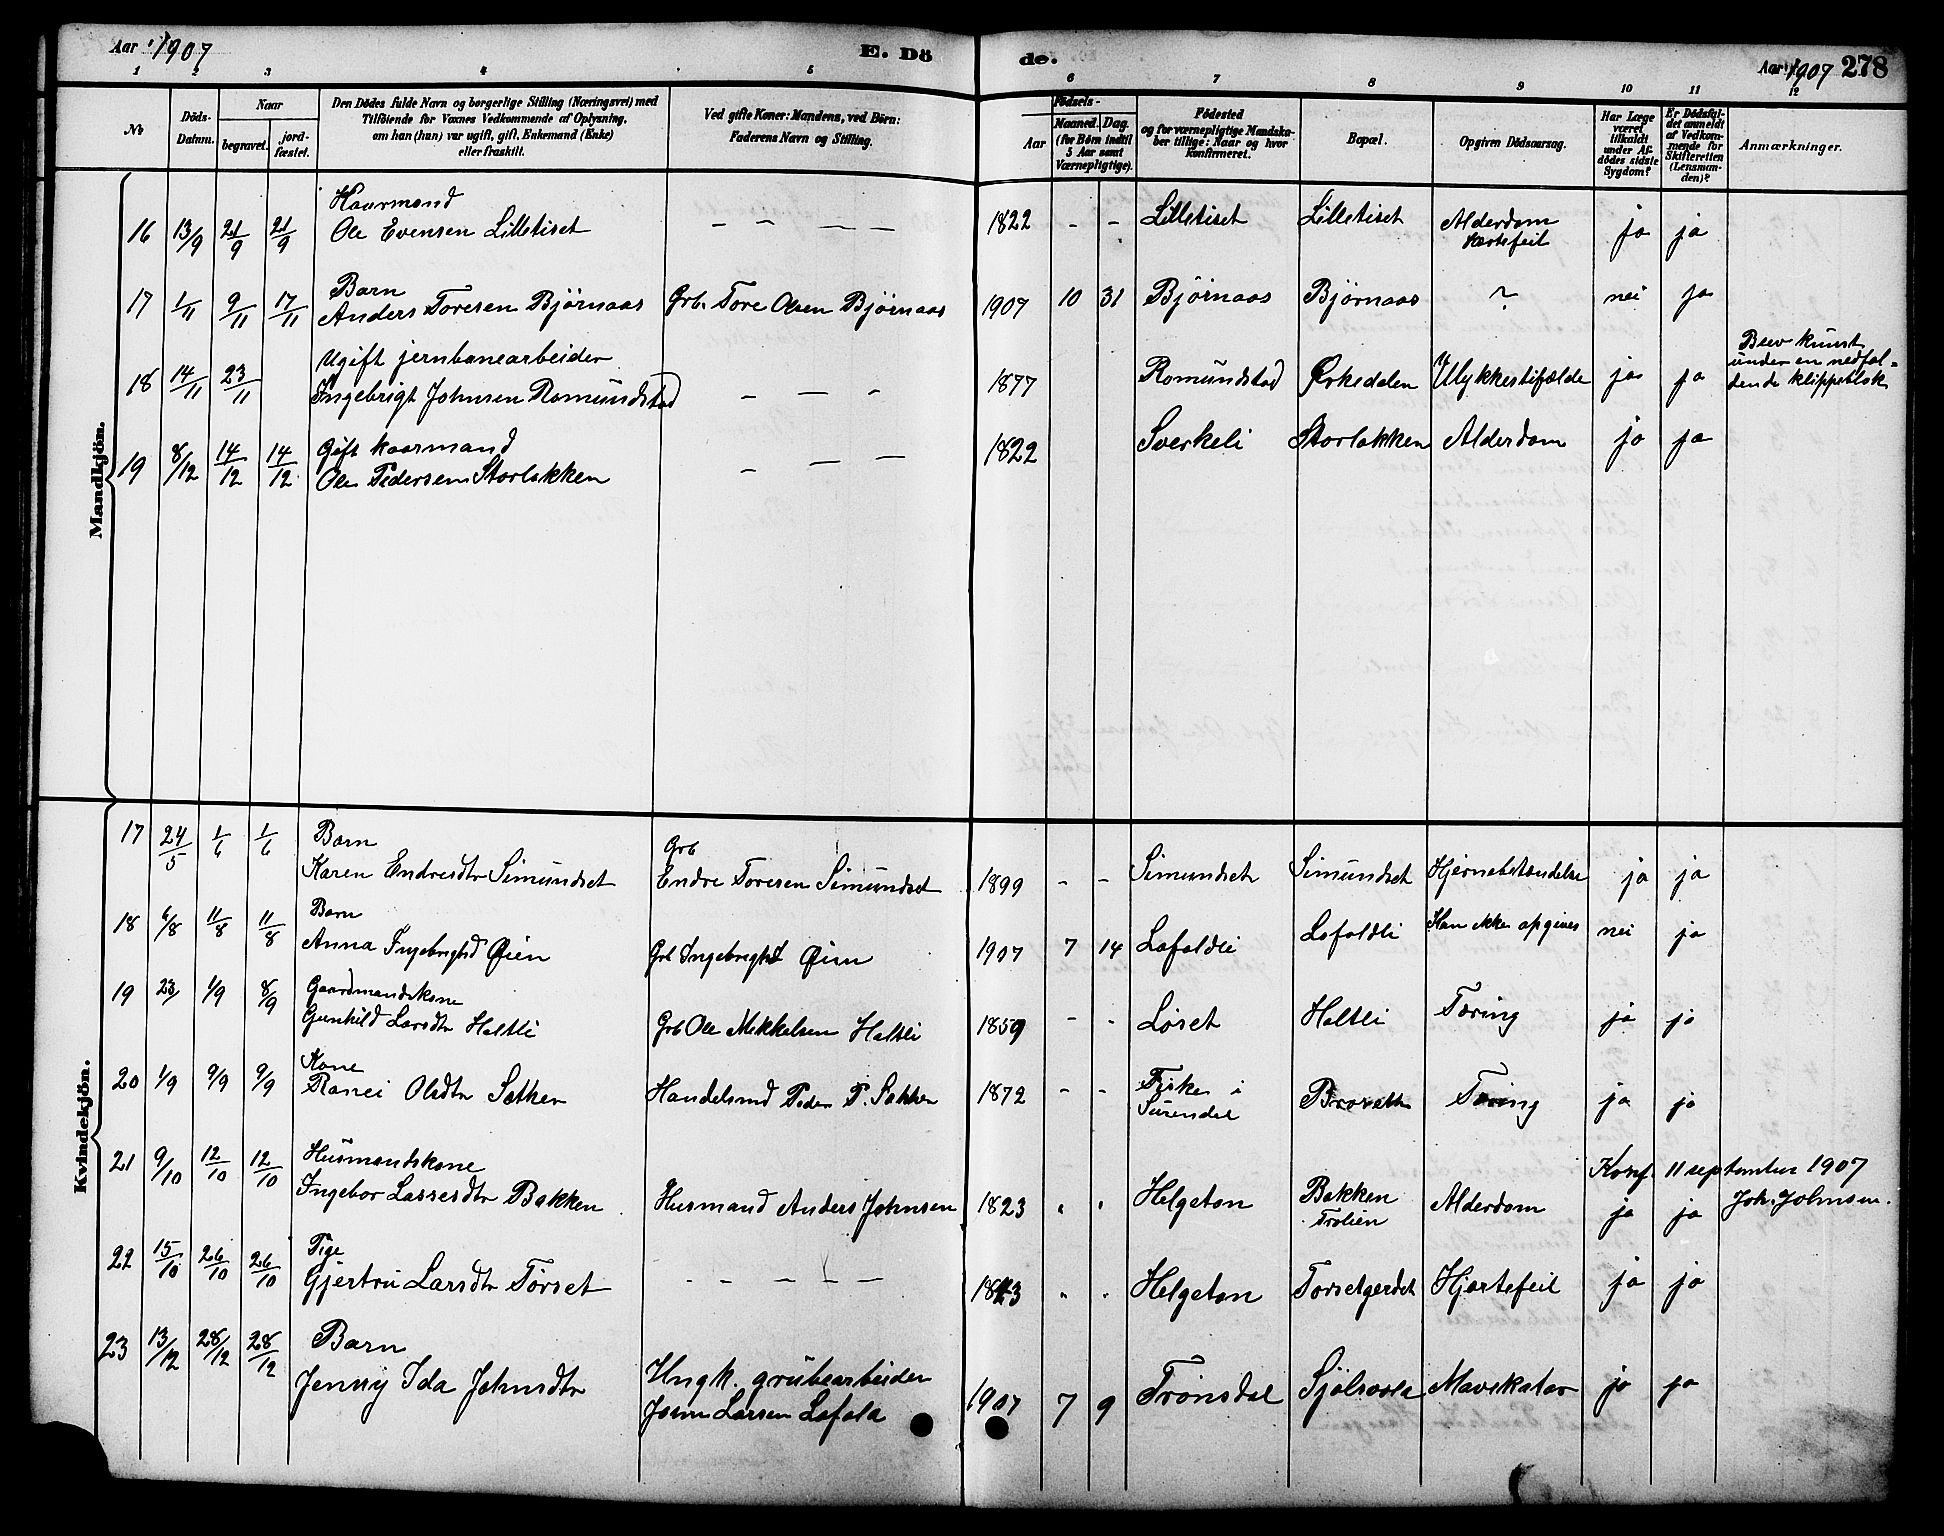 Aar 1907
E. Dö
de.
Aar 1907 278
1 2 3 4 5 6 7 8 9 10 11 12
No
Döds-Datum.
Naar
begravet. jord-fæstet.
Den Dödes fulde Navn og borgerlige Stilling (Næringsvei) med
Tilföiende for Voxnes Vedkommende af Oplysning,
om han (hun) var ugift, gift, Enkemand (Enke)
eller fraskilt.
Ved gifte Koner: Mandens, ved Börn:
Faderens Navn og Stilling.
Födsels-
Aar
Maaned. Dag.
(for Börn indtil
5 Aar samt
Værnepligtige).
Födested
og for værnepligtige Mandska-
ber tillige: Naar og hvor
konfirmeret.
Bopæl.
Opgiven Dödsaarsag.
Har Læge
været
tilkaldt
under Af-
dödes sidste
Sygdom?
Er Dödsfal-
det anmeldt
af Vedkom-
mende for
Skifteretten
(Lensman-
den)?
Anmærkninger.
Mandkjön.
Kaarmand
16 13/9 21/9 21/9 Ole Evensen Lilletiset — — — — 1822 - - Lilletiset Lilletiset Alderdom Hertefeil ja ja
Barn
17 1/11 9/11 17/11 Anders Toresen Bjørnaas Grb. Tore Olsen Bjørnaas 1907 10 31 Bjørnaas Bjørnaas ~ nei ja
Ugift jernbanearbeider
18 14/11 23/11 Ingebrigt Johnsen Romundstad — — - 1877 Romundstad Ørkedalen Ulykkestifælde ja ja
Blev knust
under en nedfal-
dende klippeblok
Gift kaarmand
19 8/12 14/12 14/12 Ole Pedersen Storløkken — — — 1822 Sverkeli Storløkken Alderdom ja ja
Kvindekjön.
17 24/5 1/6 1/6 Barn
Karen Endresdtr Simundset Grb Endre Toresen Simundset 1899 - - Simundset Simundset Hjernebetændelse ja ja
18 6/8 11/8 11/8 Barn
Anna Ingebrigtsd Øien Grb Ingebrigt Øien 1907 7 14 Lofaldli Lofaldli Kan ikke opgives nei ja
19 23/ 1/9 8/9 Gaardmandskone
Gunhild Larsdtr Holtli Grb Ole Mikkelsen Holtli 1859 - - Løset Holtli Tæring ja ja
20 1/9 9/9 9/9 Kone
Ranei Olsdtr Sæther Handelsmd Peder P. Sæther 1872 - - Fiske i Surendal Tæring ja ja
21 9/10 12/10 12/10 Husmandskone
Ingebor Lassesdtr Bakken Husmand Anders Johnsen 1823 " " Helgeton Bakken Trøien Alderdom ja ja
Konf. 11 september 1907
Joh. Johnsen.
22 15/10 26/10 26/10 Pige
Gjertru Larsdtr Tørset - — — — 1823 " " Helgeton Tørsetgerdet Hjertefeil ja ja
23 13/12 28/12 28/12 Barn
Jenny Ida Johnsdtr Ungk. grubearbeider
John Larsen Lofald 1907 7 9 Trønsdal Mavekatar ja ja